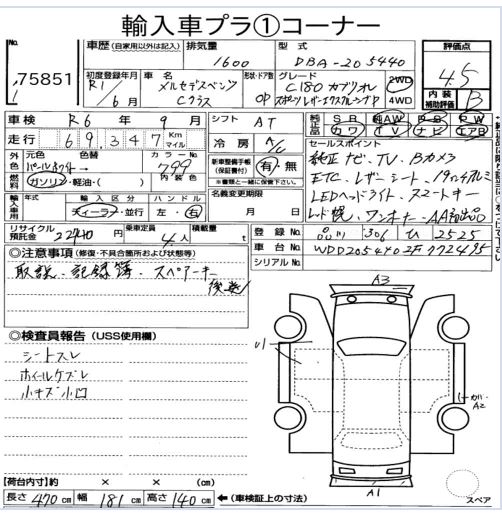 輸入車プラ①コーナー
No.
75851
車歴 (自家用以外は記入)
排気量
1600
型式
DBA-205440
評価点
4.5
内装
補助評価
B
初度登録年月
R1/6月
車名
メルセデスベンツ
Cクラス
形状・ドア数
OP
グレード
C180カブリオレ
スポーツレザーエクスクルーシブP
2WD
4WD
車検 R6年9月
シフト AT
純正品
SR 純AW PS RW
カワ TV ナビ エアB
走行 69,347 Km マイル
冷房 A/C
セールスポイント
純正ナビ、TV、Bカメラ
ETC、レザーシート、19インチアルミ
LEDヘッドライト、スマートキー
レッド幌、ワンオーナー、AA初出品
外色
元色 色替
パールホワイト→
カラーNo.
799
内装色
新車整備手帳
(保証書付)
有・無
※書類と一緒に保管して下さい。
燃料
ガソリン・軽油・( )
名義変更期限
月 日
輸入車使用
年式 輸入区分 ハンドル
ディーラー・並行 左・右
リサイクル
預託金
乗車定員
4人
積載量
t
登録No. 品川 306 ひ 2525
車台No. WDD2054402F772495
シリアルNo.
◎注意事項 (修復・不具合箇所および状態等)
取説、記録簿、スペアキー
後送り
◎検査員報告 (USS使用欄)
シートスレ
ホイールケズレ
小キズ小凹
A3
A2
A1
スペア
【荷台内寸】約 × × (cm)
長さ 470cm 幅 181cm 高さ 140cm ←(車検証上の寸法)